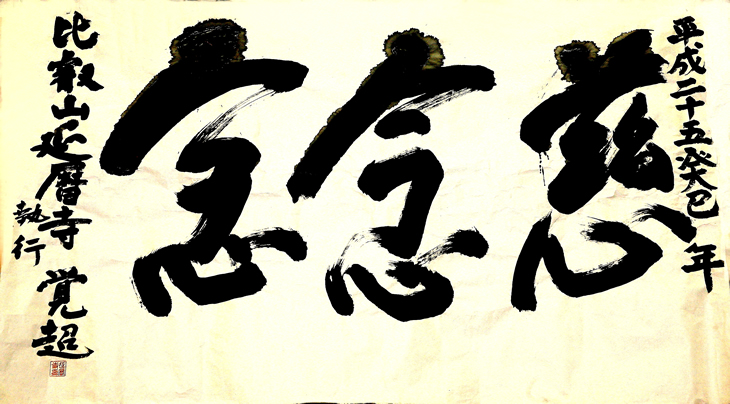 平成二十五癸巳年
慈念念
比叡山延暦寺
執行
覚超